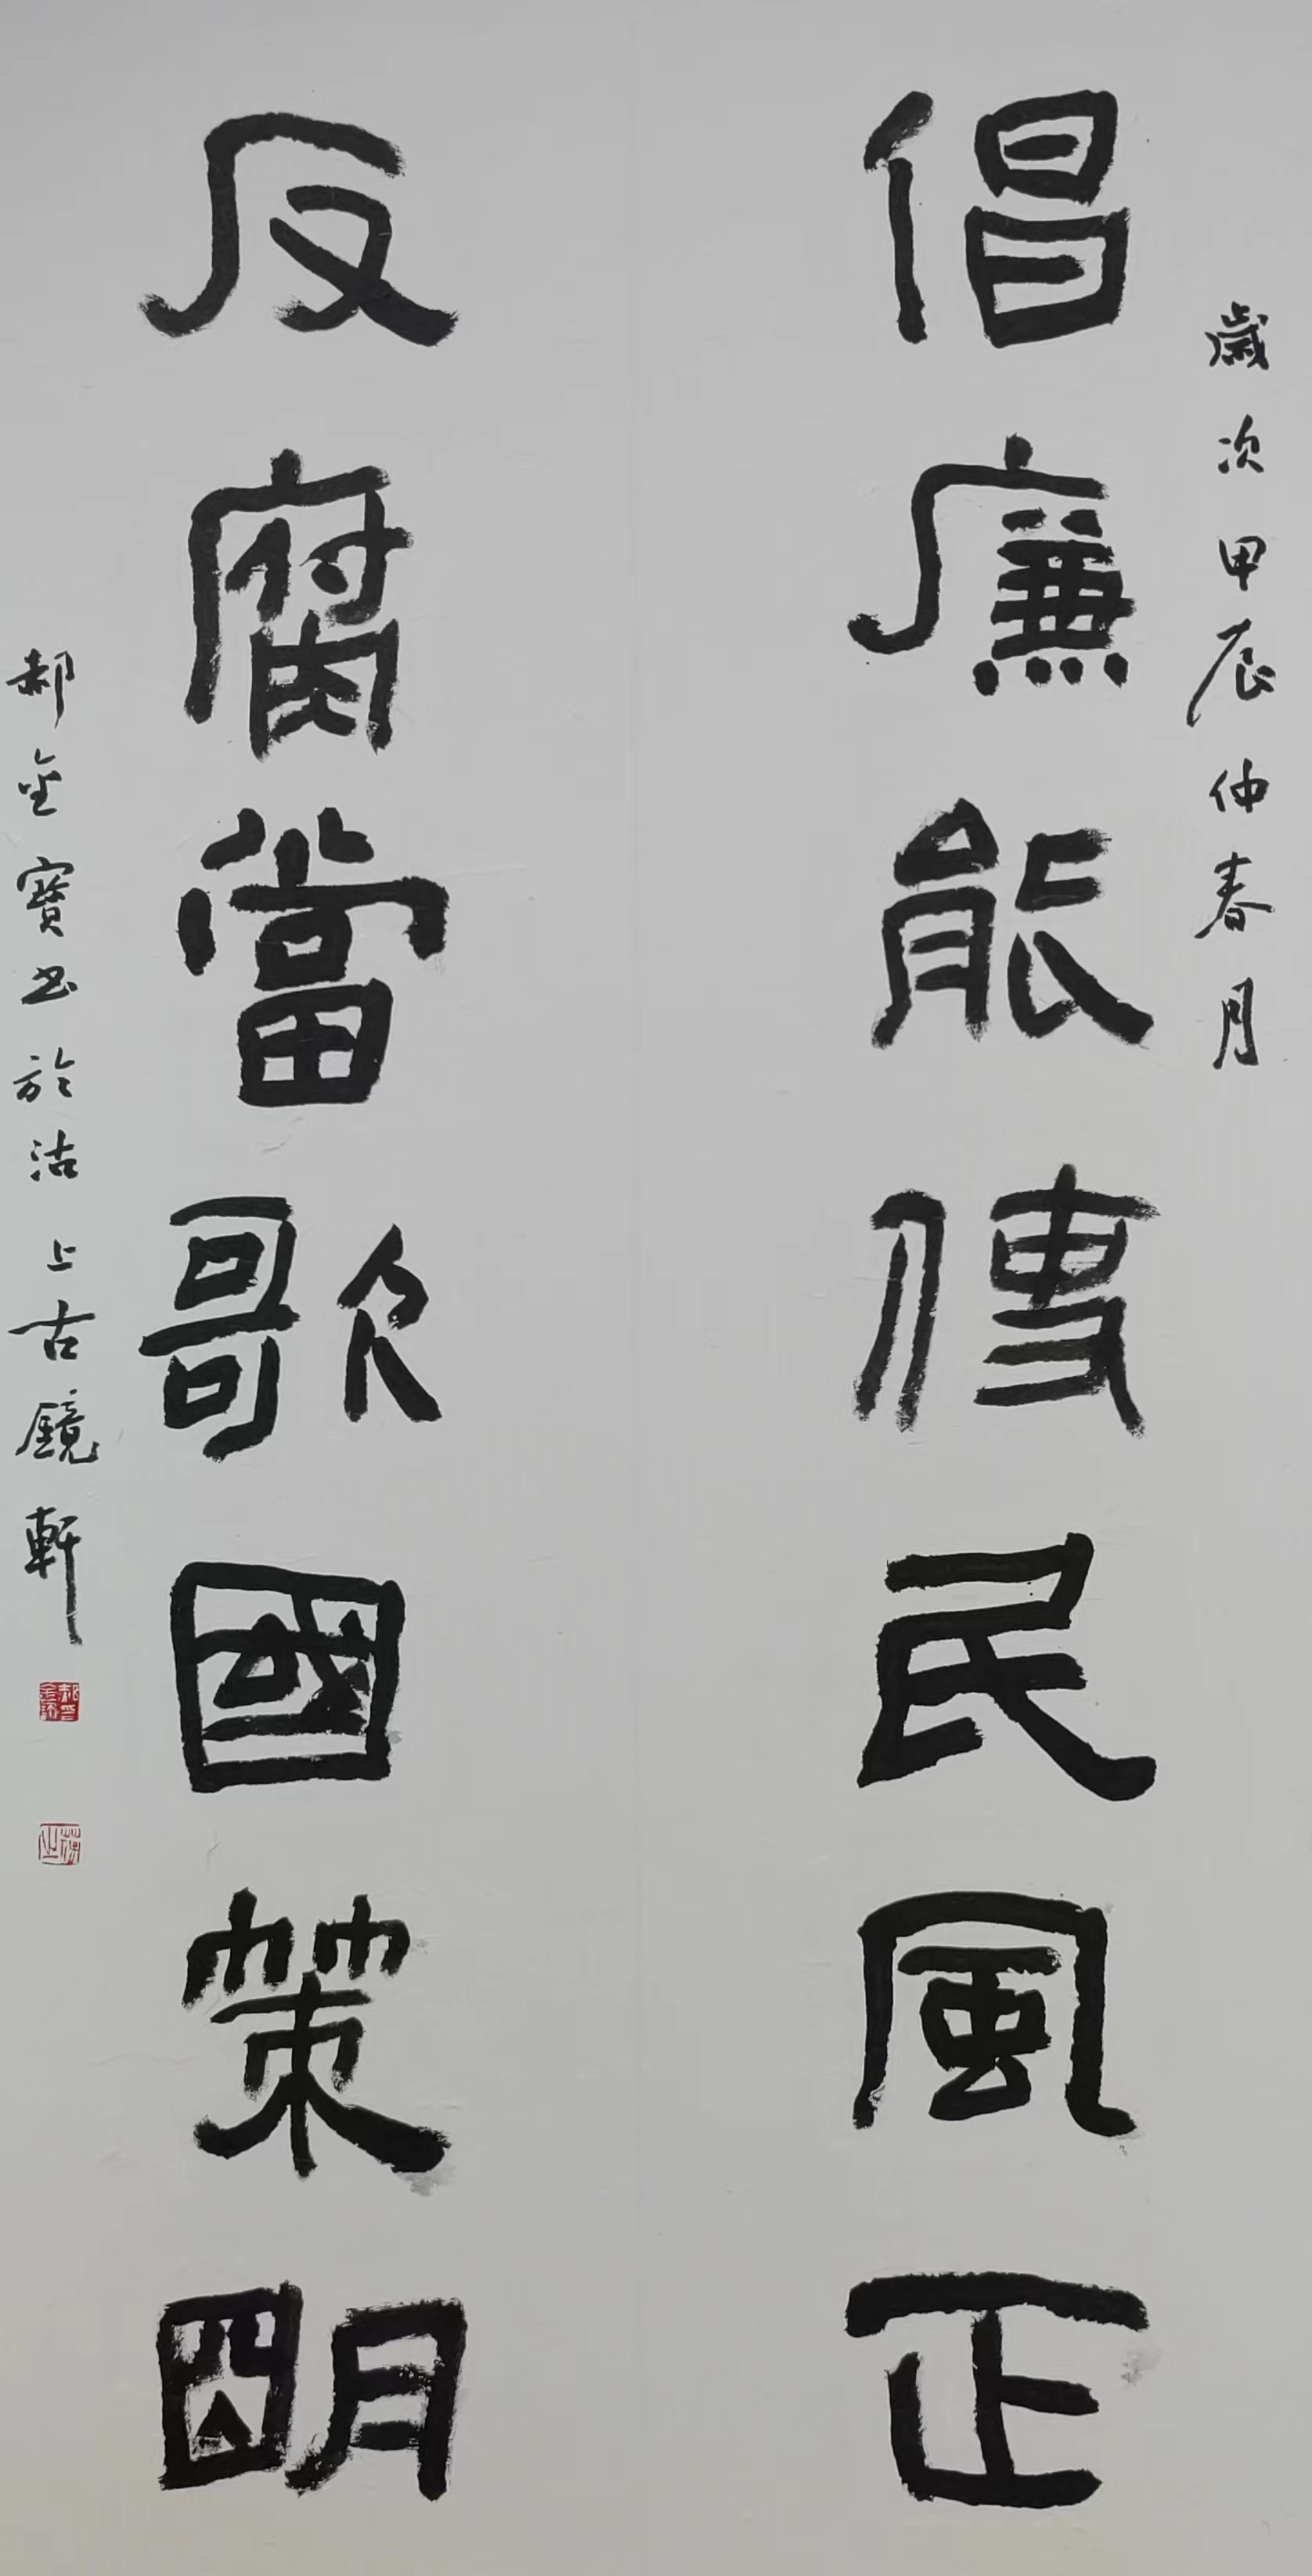 歲次甲辰仲春月
倡廉能使民風正
反腐當歌國策明
郝金寶书於沽上古鏡軒